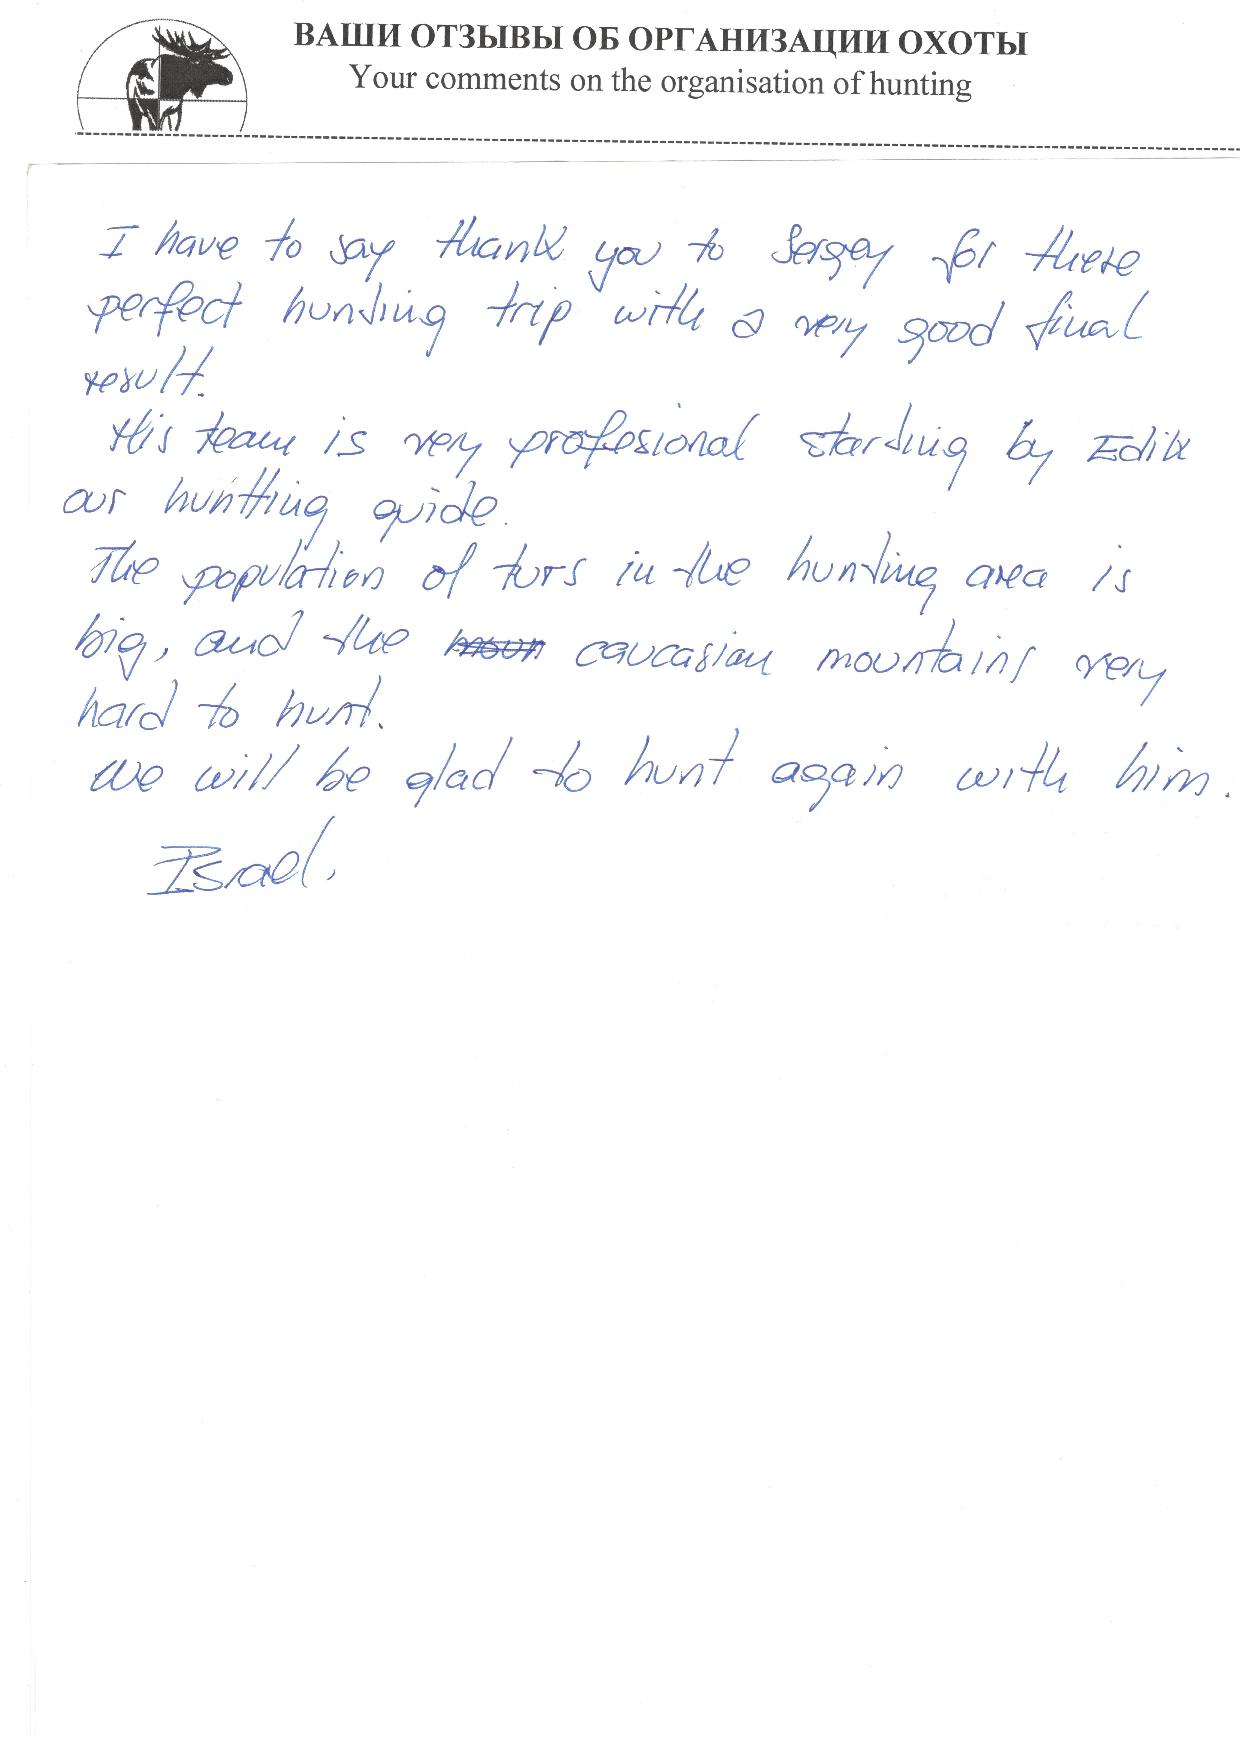 ВАШИ ОТЗЫВЫ ОБ ОРГАНИЗАЦИИ ОХОТЫ
Your comments on the organisation of hunting
I have to say thank you to Sergey for these
perfect hunting trip with a very good final
result.
His team is very profesional starting by Edik
our huntting guide.
The population of turs in the hunting area is
big, and the caucasian mountains very
hard to hunt.
We will be glad to hunt again with him.
Israel.